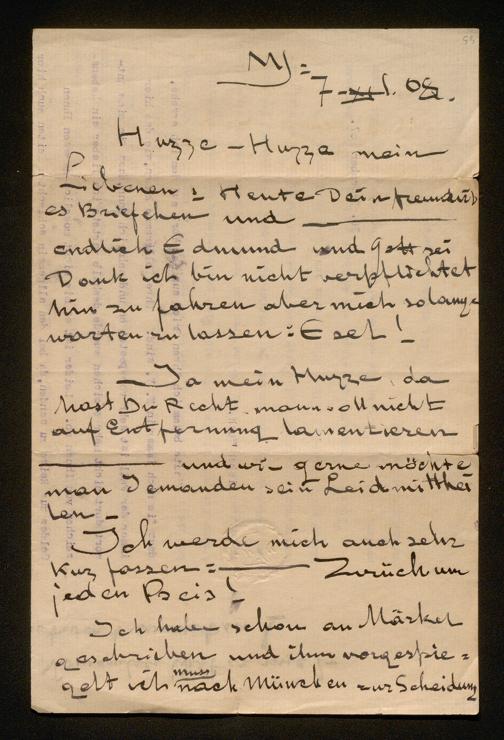 7-XII. 08.
Huzze - Huzze mein
Liebchen : Heute Dein freundli
es Briefchen und ———
endlich Edmund und Gott sei
Dank ich bin nicht verpflichtet
hin zu fahren aber mich solange
warten zu lassen : Esel !
— Ja mein Huzze, da
hast Du Recht. man soll nicht
auf Entfernung lamentieren
——— und wie gerne möchte
man Jemanden sein Leid mitthei
len —
Ich werde mich auch sehr
kurz fassen = ——— Zurück um
jeden Preis !
Ich habe schon an Märkel
geschrieben und ihm vorgespie =
gelt ich muss nach München zur Scheidung